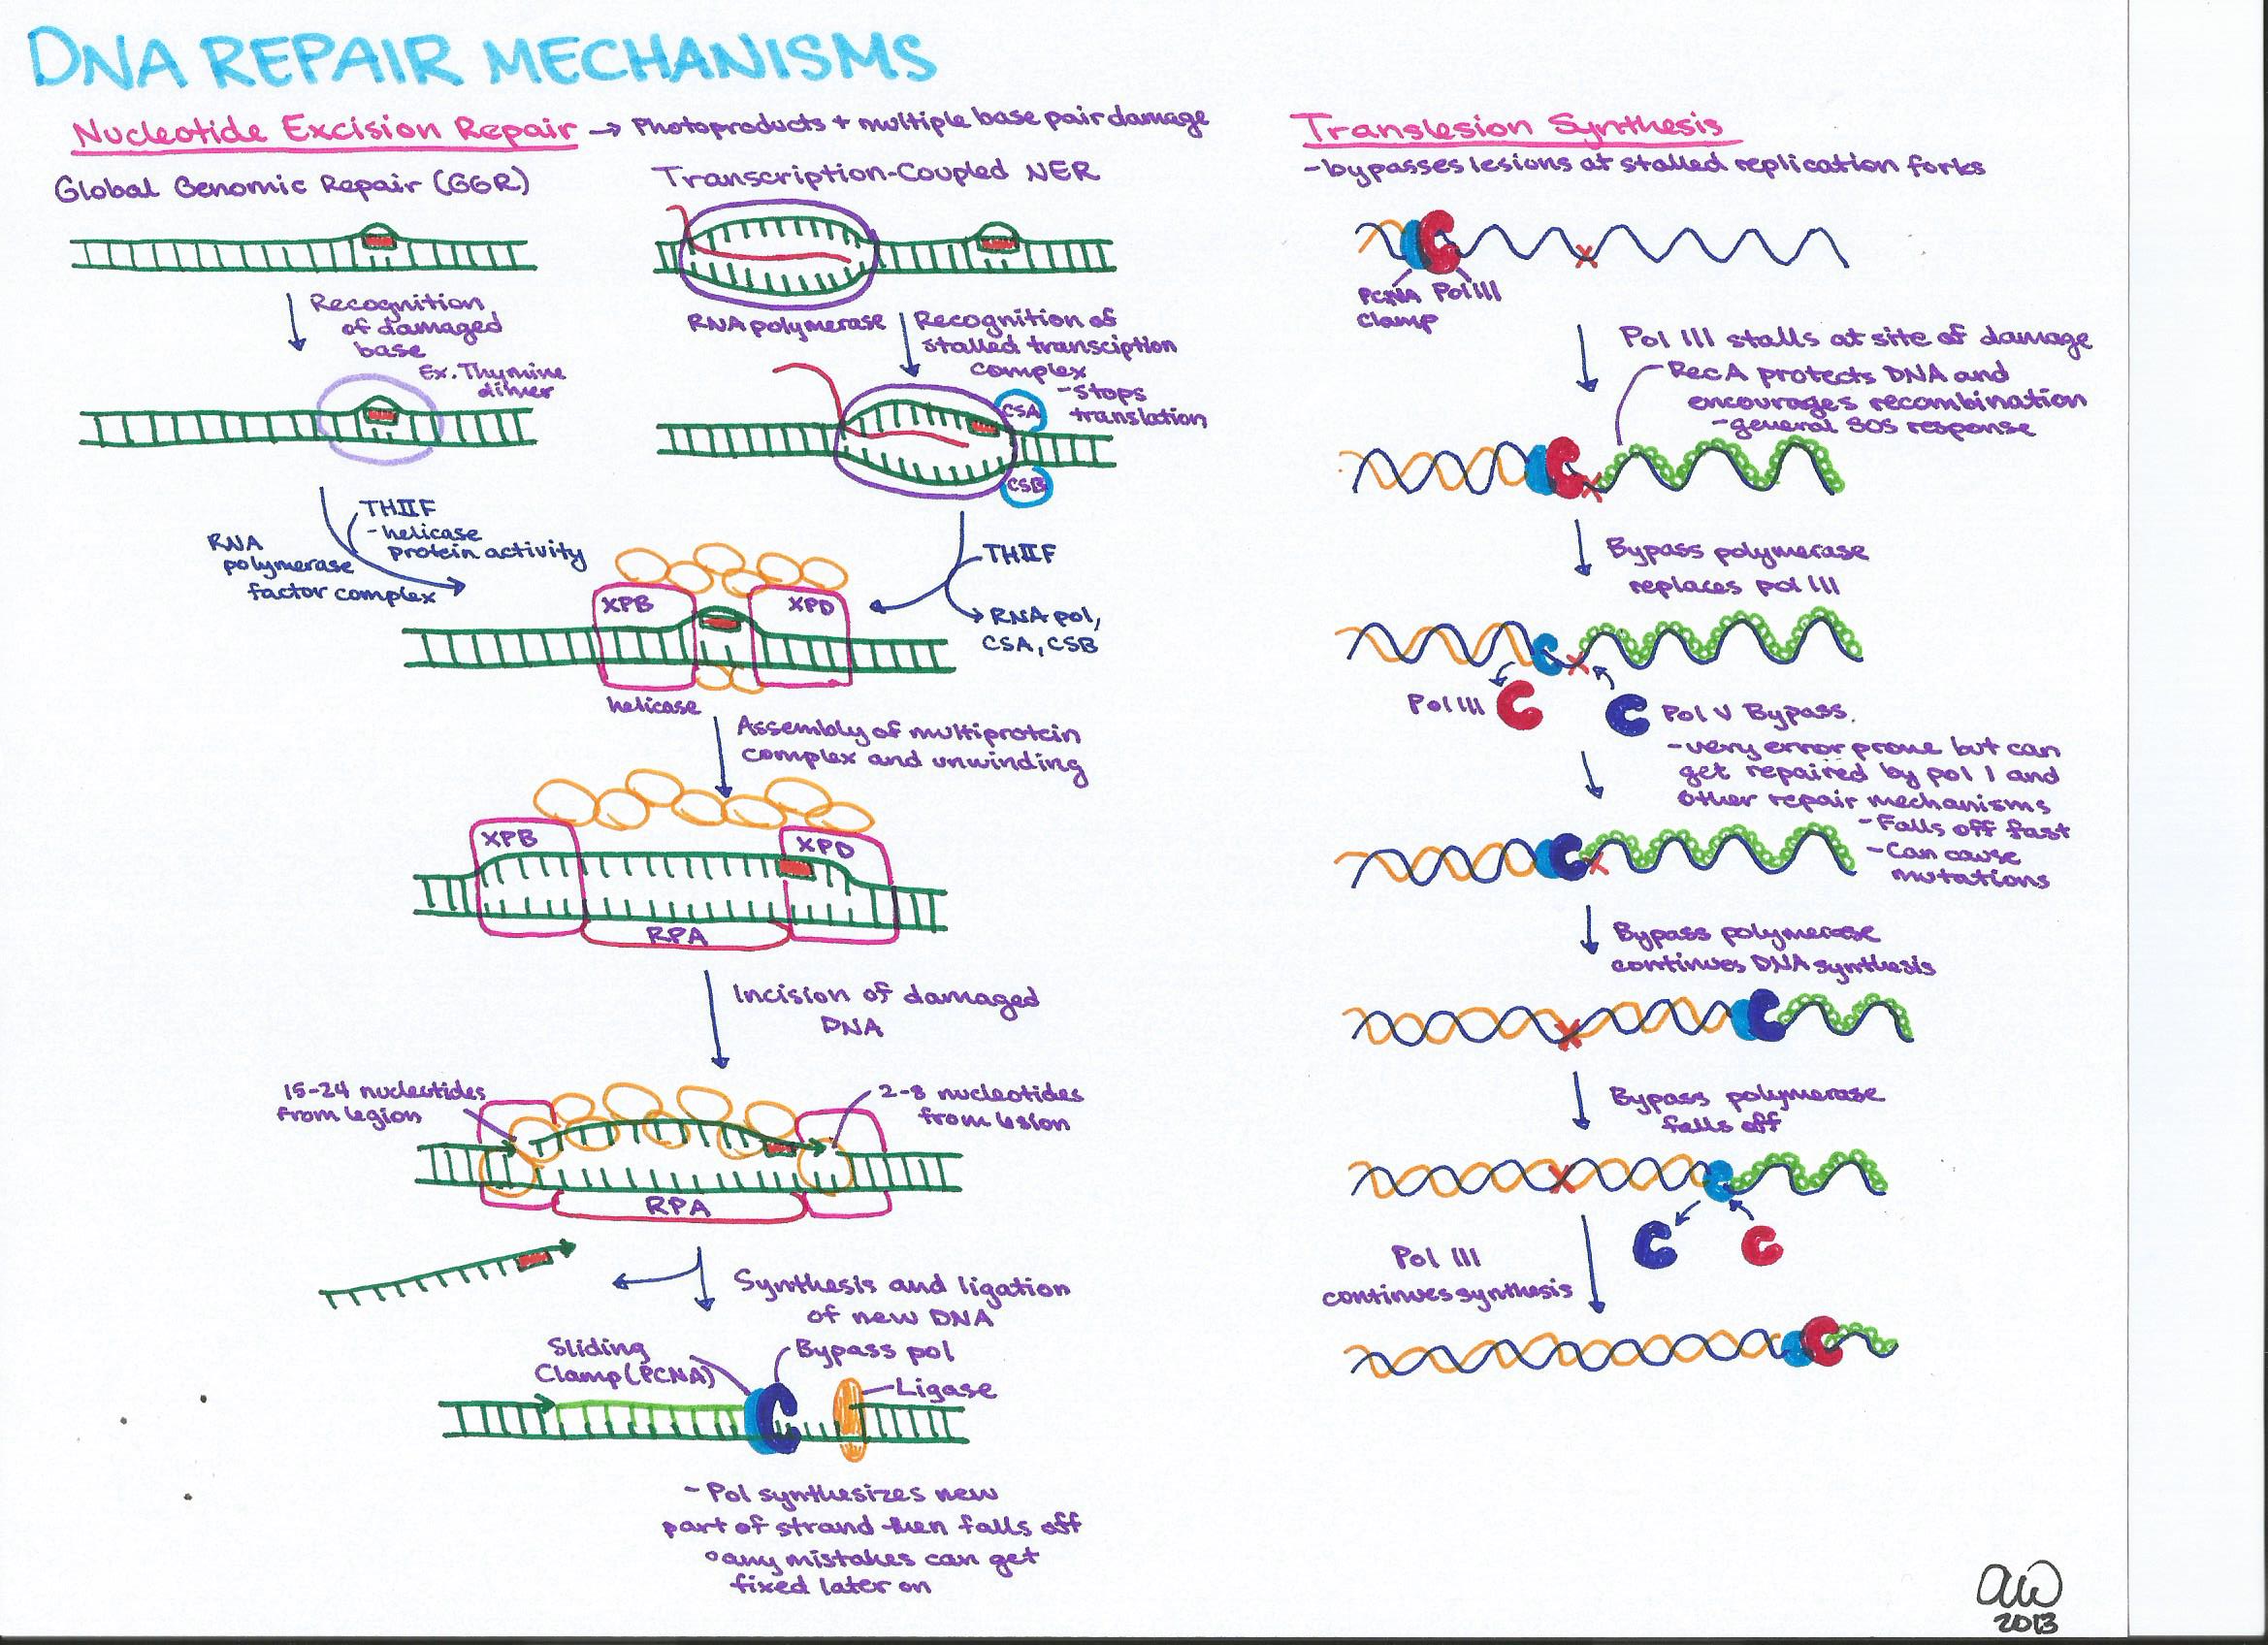 DNA REPAIR MECHANISMS
Nucleotide Excision Repair → Photoproducts + multiple base pair damage
Global Genomic Repair (GGR)
Recognition
of damaged
base
Ex. Thymine
dimer
THIIF
- helicase
protein activity
RNA
polymerase
factor complex
Transcription-Coupled NER
RNA polymerase
Recognition of
stalled transciption
complex
- stops
translation
CSA
CSB
THIIF
RNA pol,
CSA, CSB
XPB
XPD
helicase
Assembly of multiprotein
complex and unwinding
XPB
XPD
RPA
Incision of damaged
DNA
15-24 nucleotides
from legion
2-8 nucleotides
from lesion
RPA
Synthesis and ligation
of new DNA
Sliding
Clamp (PCNA)
Bypass pol
Ligase
- Pol synthesizes new
part of strand then falls off
° any mistakes can get
fixed later on
Translesion Synthesis
- bypasses lesions at stalled replication forks
PCNA
Clamp
Pol III
Pol III stalls at site of damage
RecA protects DNA and
encourages recombination
- general SOS response
Bypass polymerase
replaces pol III
Pol III
Pol V Bypass.
- very error prone but can
get repaired by pol I and
other repair mechanisms
- Falls off fast
- Can cause
mutations
Bypass polymerase
continues DNA synthesis
Bypass polymerase
falls off
Pol III
continues synthesis
aw
2013